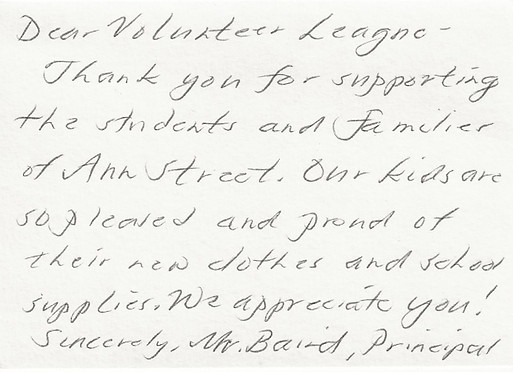 Dear Volunteer League-
Thank you for supporting
the students and families
of Ann Street. Our kids are
so pleased and proud of
their new clothes and school
supplies. We appreciate you!
Sincerely, Mr. Baird, Principal